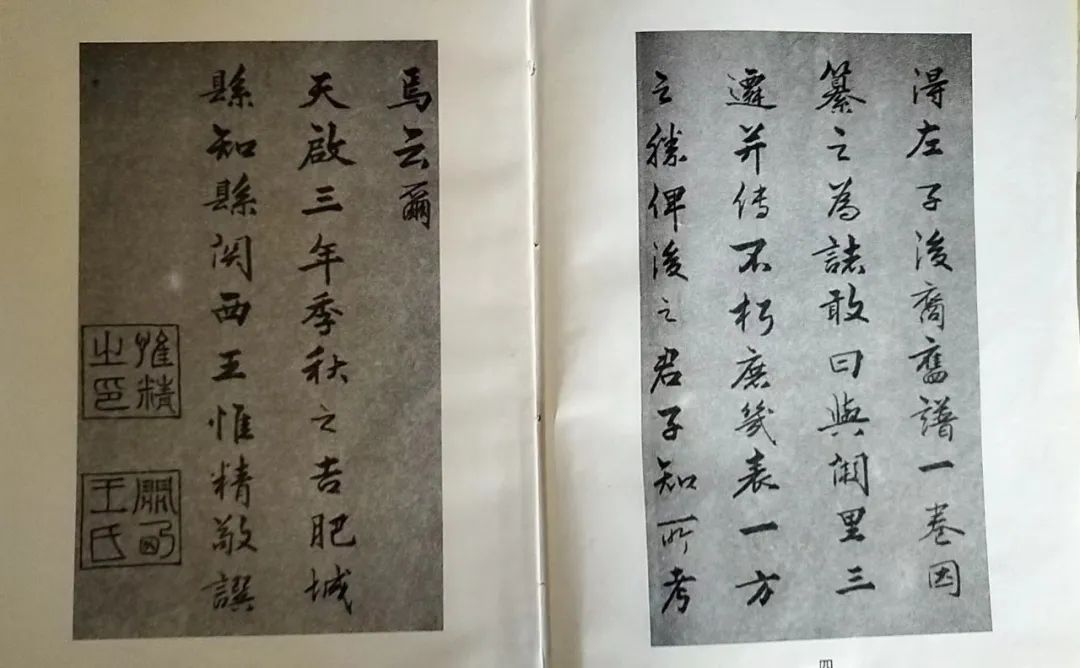 得左子後裔舊譜一卷因
纂之為誌敢曰與闕里三
遷并傳不朽庶幾表一方
之勝俾後之君子知所考
四
焉云爾
天啟三年季秋之吉肥城
縣知縣関西王惟精敬譔
惟精之印
關西王氏